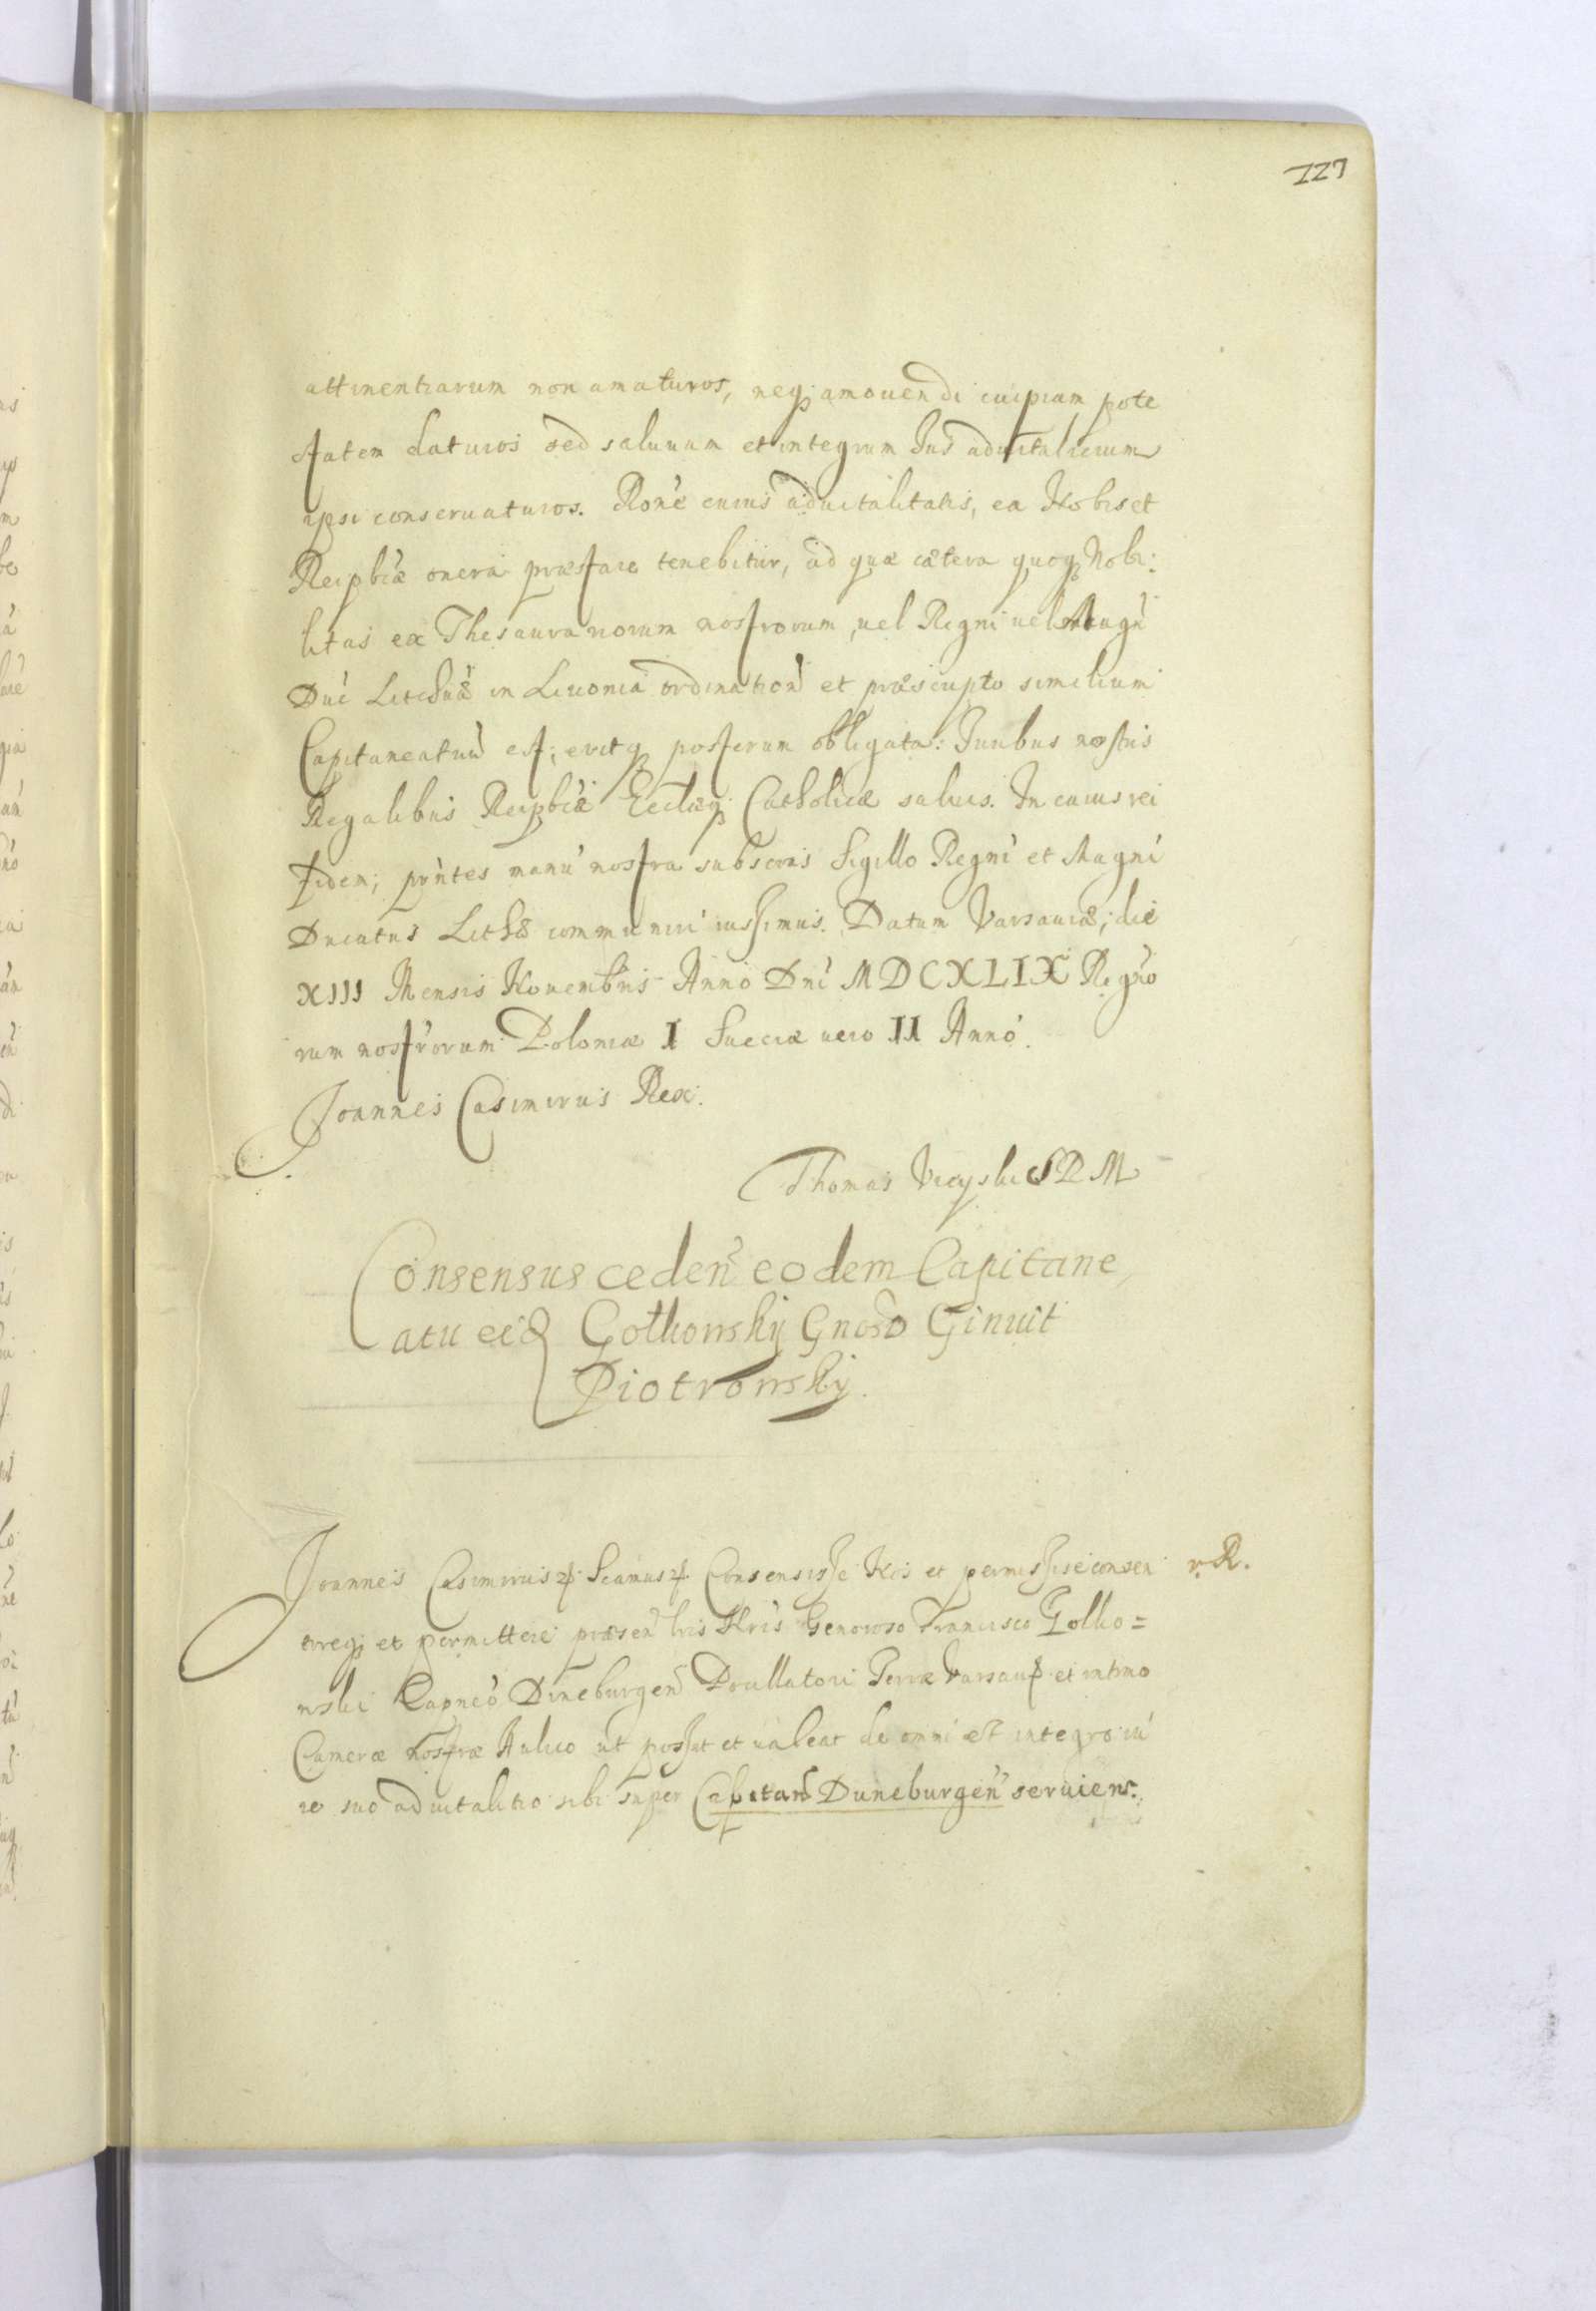 127
attinentiarum non amaturos, neq; amouendi cuipiam pote
statem daturos sed saluum et integrum Jus aduitalicium
ipsi conseruaturos. Rone cuius aduitalitatis, ea Nobis et
Reipbcæ onera præstare tenebitur, ad quæ cætera quoq; Nobi:
litas ex Thesaurariorum nostrorum, uel Regni uel Magni
Duc Lithuã in Liuonia ordination et præscripto similium
Capitaneatuũ est; eritq; posterum obligata: Juribus nostris
Regalibus Reipbcæ Eccliæq; Catholicæ saluis. In cuius rei
fidem; pñtes manu nostra subscrias Sigillo Regni et Magni
Ducatus Lith communiri iussimus. Datum Varsauiæ; die
XIII Mensis Nouembris Anno Dni MDCXLIX Regno
rum nostrorum Poloniæ I Sueciæ uero II Anno.
Joannes Casimirus Rex.
Thomas Vieyski S R M
Consensus ceden eodem Capitane
atu Gotkowskij Gnoso Ginwit
Piotrowskij.
Joannes Casimirus Scimus Consensisse Nos et permisisse consen r. R.
tireq; et permittere præsen lris Nris Generoso Francisco Golko=
wski Capneo Dineburgen Terræ Varsau et intimo
Cameræ nostræ Aulico ut possit et ualeat de omni et integro iu
re suo aduitalitio sibi super Capitan Duneburgen seruien: